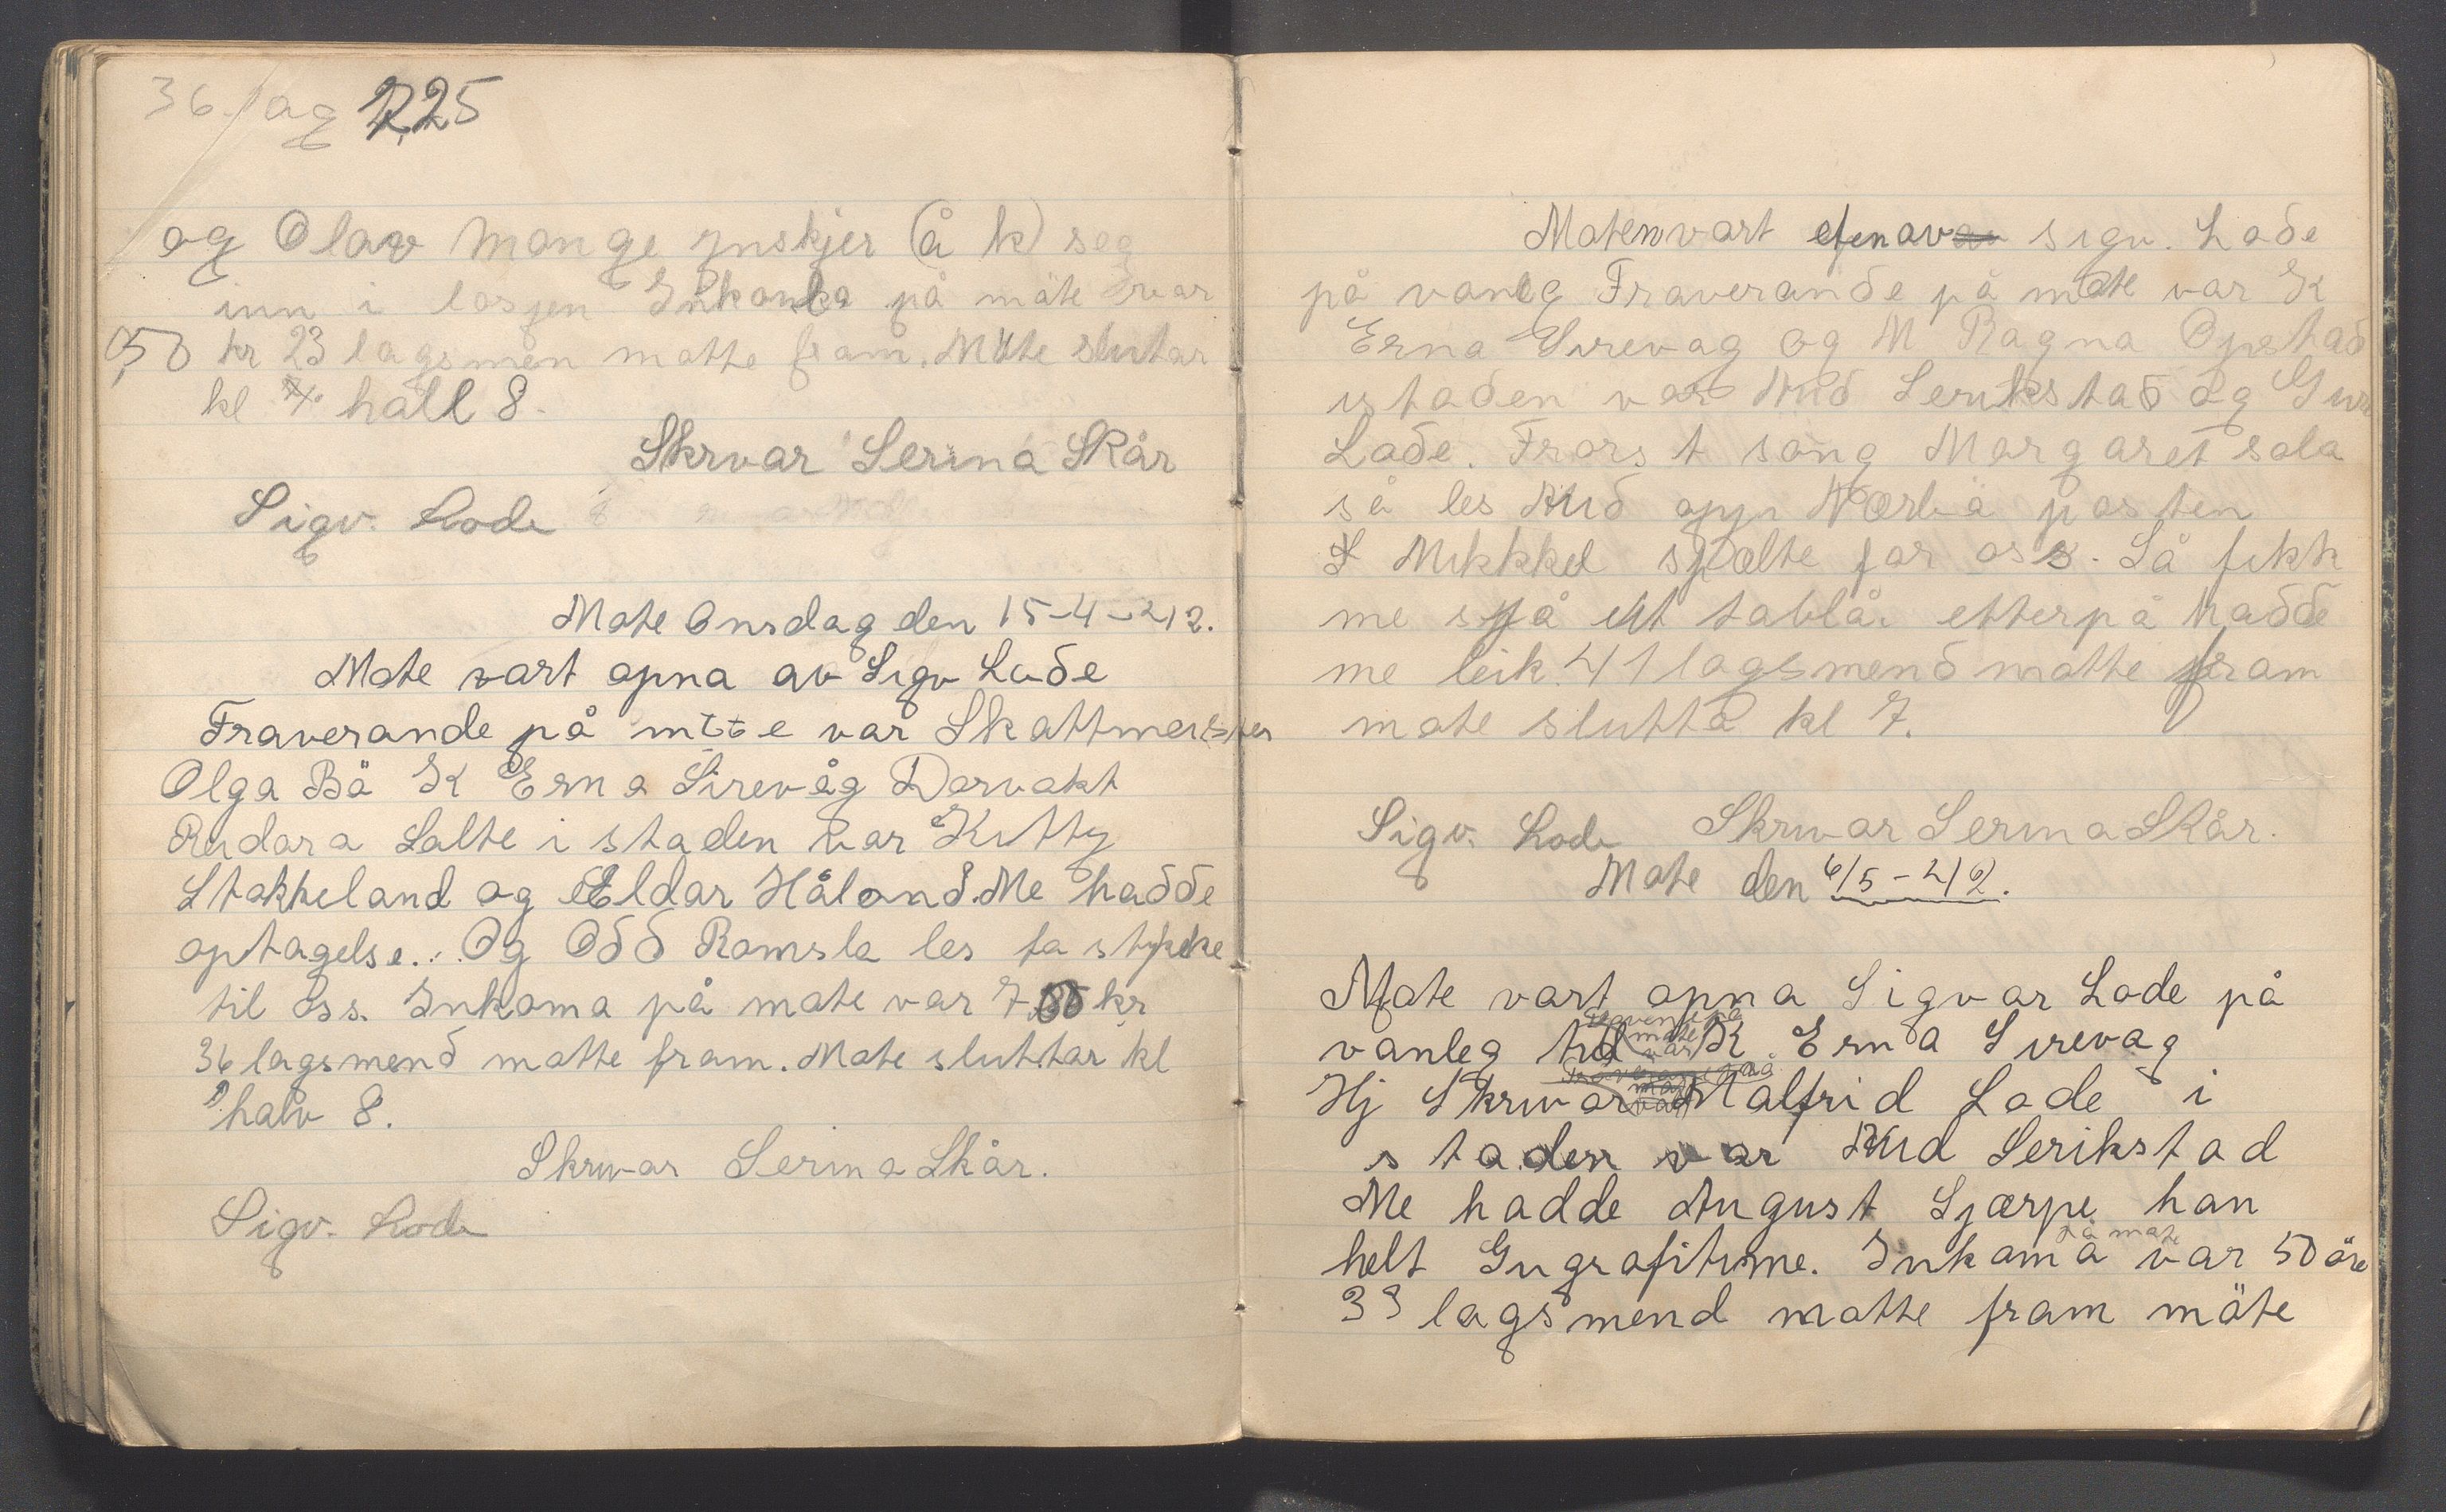 36 lag 2,25
og Olav Monge ynskjer (å k) seg
inn i losjen Inkomka på møte var
0,50 kr 23 lagsmen møtte fram. Møte slutar
kl hall 8.
Skrivar Serina Skår
Sigv. Lode
Møte Onsdag den 15-4-42.
Møte vart opna av Sigv Lode
Fraverande på møte var Skattmeister
Olga Bö K Erna Sirevåg Dørvakt
Reidara Salte i staden var Kitty
Stokkeland og Eldar Håland. Me hadde
optagelse... Og Odd Romsla les to stykke
til oss. Inkoma på møte var 7,00 kr
36 lagsmend møtte fram. Møte sluttar kl
halv 8.
Skrivar Serina Skår.
Sigv. Lode
Møten vart opna av Sigv. Lode
på vanleg Fraverande på møte var K
Erna Sirevag og M Ragna Opstad
istaden var Aud Serikstad og Guri
Lode. Frørst song Margaret sola
så les Aud opp Nærbø posten
Mikkkel spælte for oss. Så fikk
me sjå eit tablå etterpå hadde
me leik. 41 lagsmend møtte fram
møte slutta kl 7.
Sigv. Lode Skrivar Serina Skår.
Møte den 6/5-42.
Møte vart opna Sigvar Lode på
vanleg tid Fraverande på møte var K. Erna Sirevåg
Hj Skrivar Malfrid Lode i
staden var Aud Serikstad
Me hadde August Sjærpe han
helt Gugrafitime. Inkoma på møte var 50 öre
33 lagsmend møtte fram möte